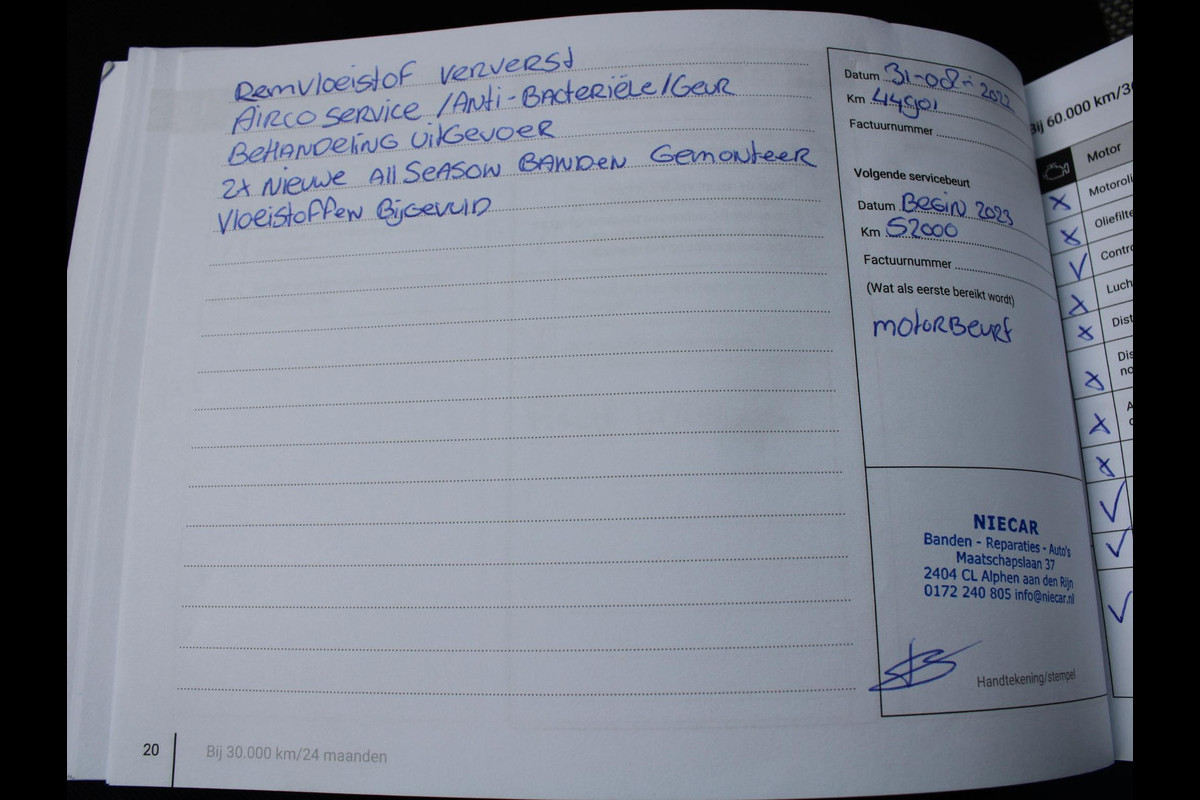 Remvloeistof ververst
Airco service / Anti-Bacteriële / Geur
Behandeling uitgevoer
2x nieuwe All Season Banden Gemonteer
Vloeistoffen Bijgevuld
Datum 31-08-2022
Km 44901
Factuurnummer
Volgende servicebeurt
Datum Begin 2023
Km 52000
Factuurnummer
(Wat als eerste bereikt wordt)
motorbeurt
NIECAR
Banden - Reparaties - Auto's
Maatschapslaan 37
2404 CL Alphen aan den Rijn
0172 240 805 info@niecar.nl
Handtekening/stempel
20 Bij 30.000 km/24 maanden
Bij 60.000 km/3
Motor
Motoroli
Oliefilte
Contro
Luch
Dist
Dis
no